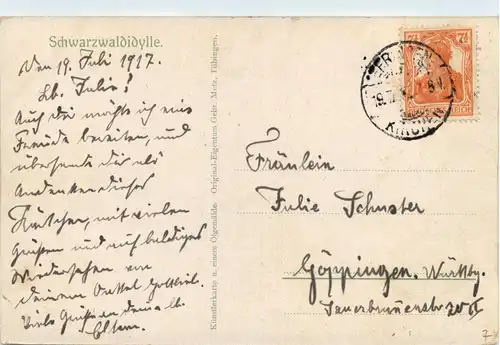 Schwarzwaldidylle.
Den 19. Juli 1917.
Lb. Julie!
Auch dir möchte ich eine
Freude bereiten, und
übersende dir als
Andenken dieses
Kärtchen, mit vielen
Grüßen und auf baldiges
Wiedersehen von
deinem Onkel Gottlieb.
Viele Grüße an deine lb.
Eltern.
Künstlerkarte n. einem Ölgemälde. Original-Eigentum Gebr. Metz, Tübingen.
7½ 7½
KIRCHEN
Fräulein
Julie Schuster
Göppingen. Württbg.
Sauerbrunnenstr